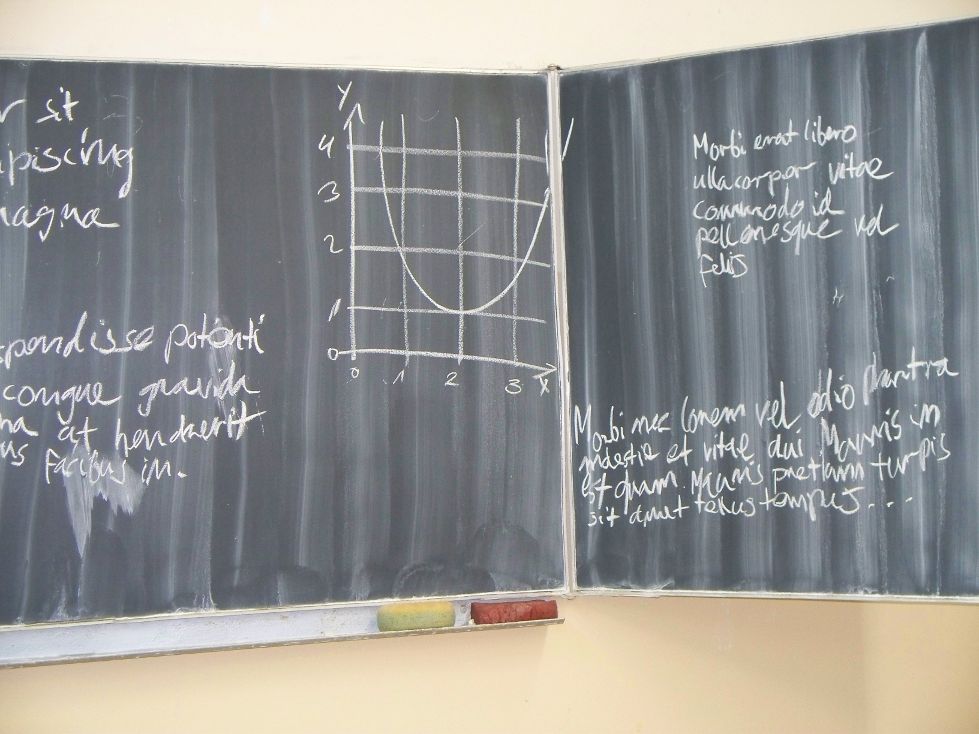 r sit
ipiscing
nagna
spendisse potenti
congue gravida
na at hendrerit
us facibus in.
Y
4
3
2
1
0
0 1 2 3
X
Morbi erat libero
ullacorper vitae
commodo id
pellenesque vel
felis
Morbi nec lorem vel odio pharetra
molestie et vitae dui Mauris in
est quam. Mauris pretium turpis
sit amet tellus tempus...